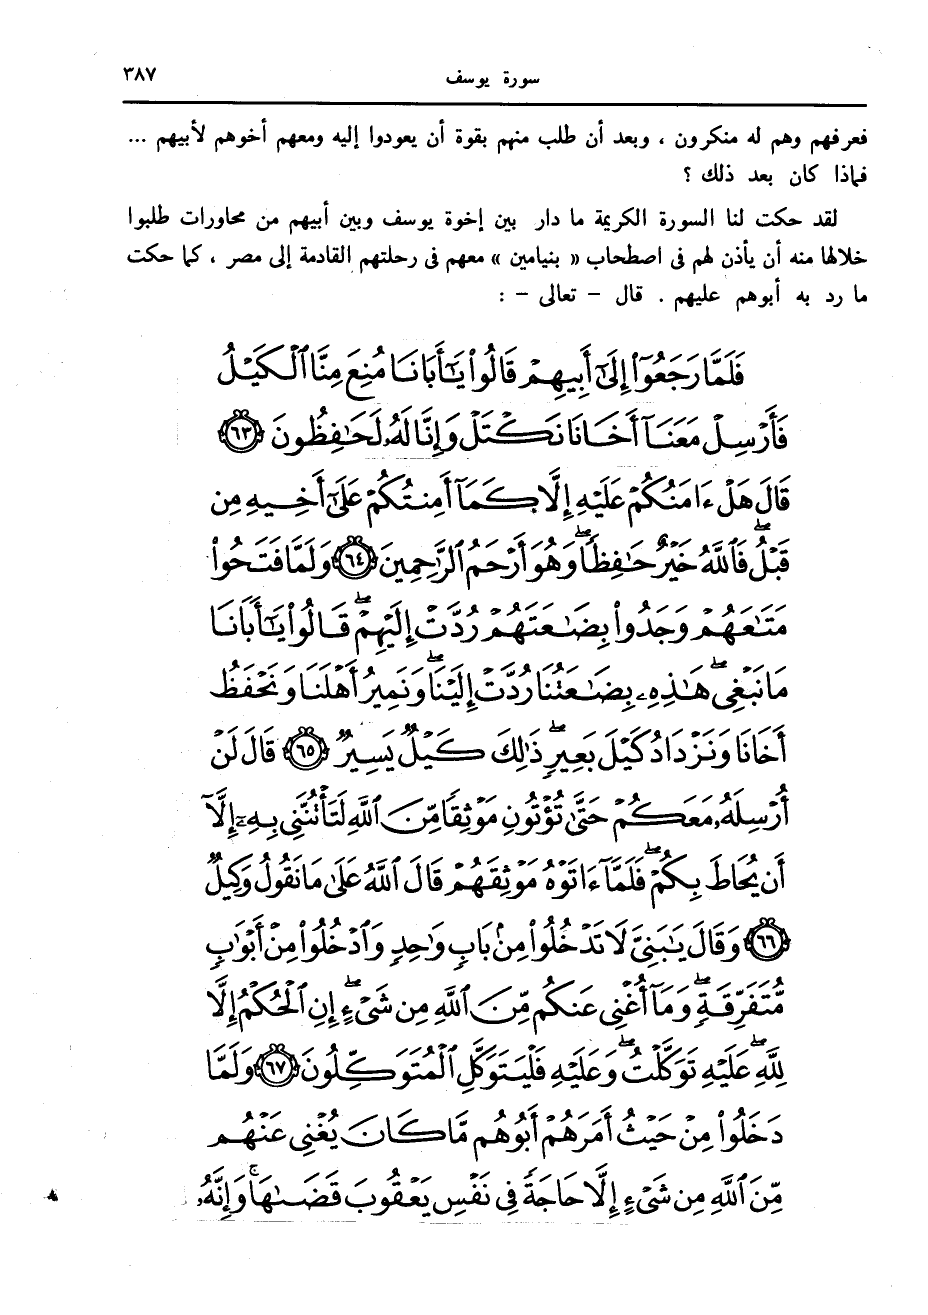 سورة يوسف ٣٨٧
فعرفهم وهم له منكرون ، وبعد أن طلب منهم بقوة أن يعودوا إليه ومعهم أخوهم لأبيهم ...
فماذا كان بعد ذلك ؟
لقد حكت لنا السورة الكريمة ما دار بين إخوة يوسف وبين أبيهم من محاورات طلبوا
خلالها منه أن يأذن لهم فى اصطحاب « بنيامين » معهم فى رحلتهم القادمة إلى مصر ، كما حكت
ما رد به أبوهم عليهم . قال - تعالى - :
فَلَمَّا رَجَعُوٓا۟ إِلَىٰٓ أَبِيهِمْ قَالُوا۟ يَٰٓأَبَانَا مُنِعَ مِنَّا ٱلْكَيْلُ
فَأَرْسِلْ مَعَنَآ أَخَانَا نَكْتَلْ وَإِنَّا لَهُۥ لَحَٰفِظُونَ ﴿٦٣﴾
قَالَ هَلْ ءَامَنُكُمْ عَلَيْهِ إِلَّا كَمَآ أَمِنتُكُمْ عَلَىٰٓ أَخِيهِ مِن
قَبْلُ ۖ فَٱللَّهُ خَيْرٌ حَٰفِظًا ۖ وَهُوَ أَرْحَمُ ٱلرَّٰحِمِينَ ﴿٦٤﴾ وَلَمَّا فَتَحُوا۟
مَتَٰعَهُمْ وَجَدُوا۟ بِضَٰعَتَهُمْ رُدَّتْ إِلَيْهِمْ ۖ قَالُوا۟ يَٰٓأَبَانَا
مَا نَبْغِى ۖ هَٰذِهِۦ بِضَٰعَتُنَا رُدَّتْ إِلَيْنَا ۖ وَنَمِيرُ أَهْلَنَا وَنَحْفَظُ
أَخَانَا وَنَزْدَادُ كَيْلَ بَعِيرٍ ۖ ذَٰلِكَ كَيْلٌ يَسِيرٌ ﴿٦٥﴾ قَالَ لَنْ
أُرْسِلَهُۥ مَعَكُمْ حَتَّىٰ تُؤْتُونِ مَوْثِقًا مِّنَ ٱللَّهِ لَتَأْتُنَّنِى بِهِۦٓ إِلَّآ
أَن يُحَاطَ بِكُمْ ۖ فَلَمَّآ ءَاتَوْهُ مَوْثِقَهُمْ قَالَ ٱللَّهُ عَلَىٰ مَا نَقُولُ وَكِيلٌ
﴿٦٦﴾ وَقَالَ يَٰبَنِىَّ لَا تَدْخُلُوا۟ مِنۢ بَابٍ وَٰحِدٍ وَٱدْخُلُوا۟ مِنْ أَبْوَٰبٍ
مُّتَفَرِّقَةٍ ۖ وَمَآ أُغْنِى عَنكُم مِّنَ ٱللَّهِ مِن شَىْءٍ ۖ إِنِ ٱلْحُكْمُ إِلَّا
لِلَّهِ ۖ عَلَيْهِ تَوَكَّلْتُ ۖ وَعَلَيْهِ فَلْيَتَوَكَّلِ ٱلْمُتَوَكِّلُونَ ﴿٦٧﴾ وَلَمَّا
دَخَلُوا۟ مِنْ حَيْثُ أَمَرَهُمْ أَبُوهُم مَّا كَانَ يُغْنِى عَنْهُم
مِّنَ ٱللَّهِ مِن شَىْءٍ إِلَّا حَاجَةً فِى نَفْسِ يَعْقُوبَ قَضَىٰهَا ۚ وَإِنَّهُۥ